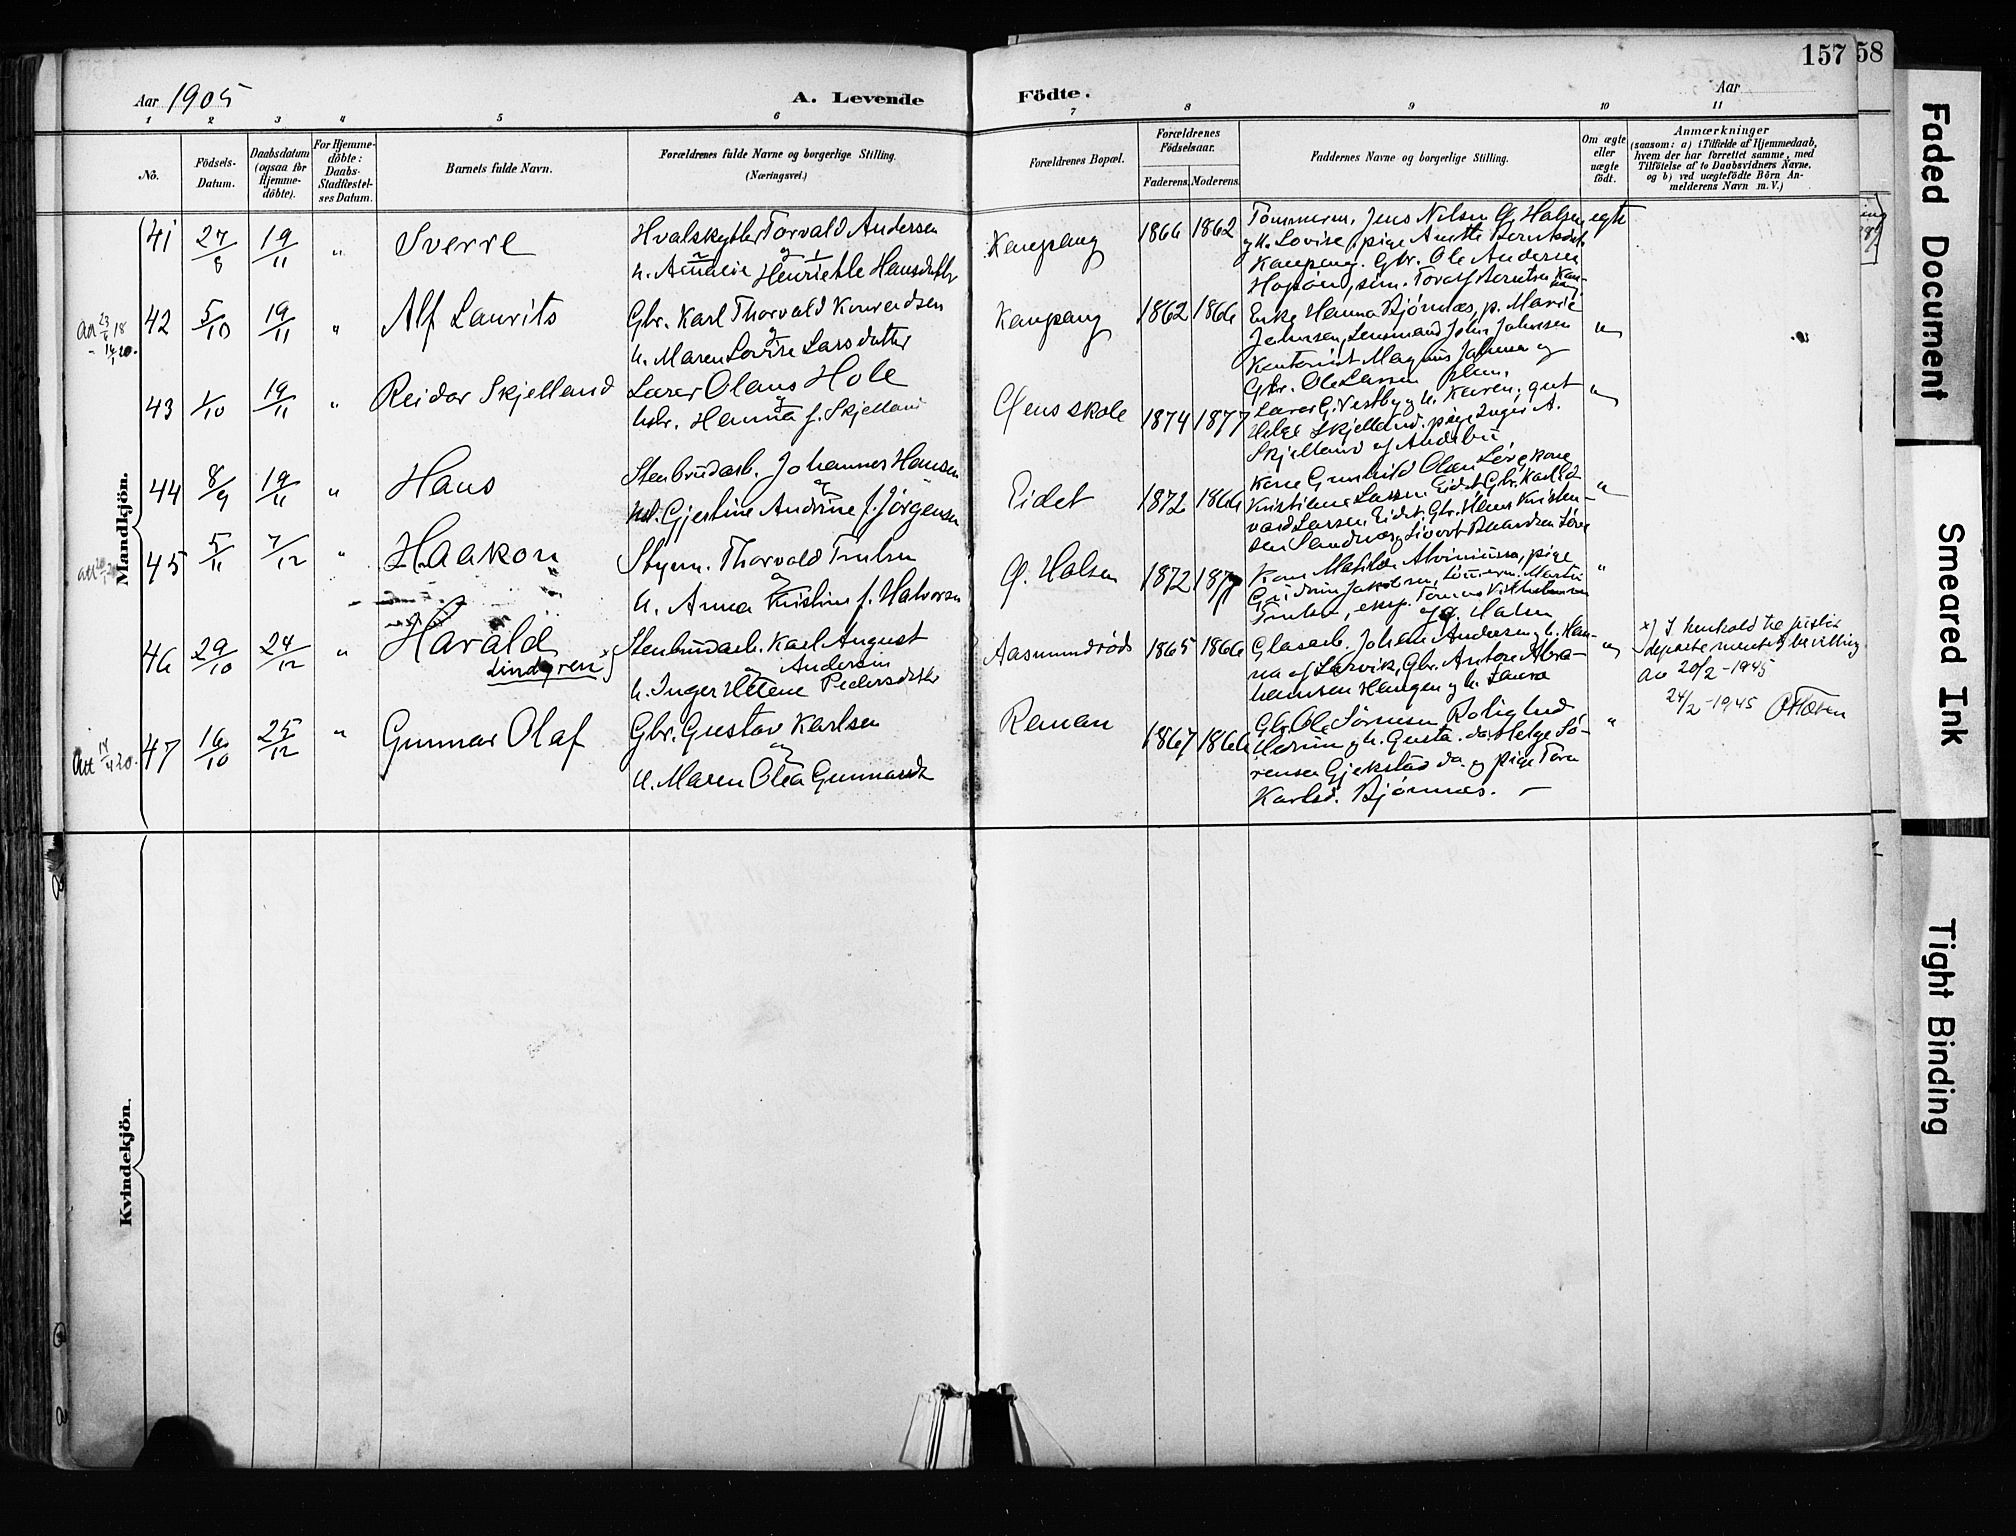 157 58
Aar 1905
A. Levende Födte.
Aar
1 2 3 4 5 6 7 8 9 10 11
No.
Födsels-Datum.
Daabsdatum (ogsaa for Hjemmedöbte).
For Hjemmedöbte: Daabs-Stadfæstelses Datum.
Barnets fulde Navn.
Forældrenes fulde Navne og borgerlige Stilling.
(Næringsvei.)
Forældrenes Bopæl.
Forældrenes Födselsaar.
Faderens. Moderens.
Faddernes Navne og borgerlige Stilling.
Om ægte eller uægte födt.
Anmærkninger
(saasom: a) i Tilfælde af Hjemmedaab,
hvem der har forrettet samme, med
Tilföielse af to Daabsvidners Navne,
og b) ved uægtefödte Börn Anmelderens Navn m. V.)
Mandkjön.
41 27/8 19/11 " Sverre
Hvalskytter Torvald Andersen
og
h. Amalie Henriette Hansdatter
Kaupang 1866 1862
Tømmerm. Jens Nilsen G. Halsen
og h. Lovise, pige Anette Berntsdt.
Kaupang. Gbr. Ole Andersen
ægte
42 5/10 19/11 " Alf Laurits
Gbr. Karl Thorvald Konradsen
og
h. Maren Lovise Larsdatter
Kaupang 1862 1866
Enke Hanna Bjørnæs, p. Marie
Johnsen, Lensmand John Johnsen
Kontorist Magnus Johnsen og
Gbr. Ole Larsen
"
43 1/10 19/11 " Reidar Skjelland
Lærer Olaus Hole
og
hstr. Hanna f. Skjelland
skole 1874 1877
Lærer G. Vestby og h. Karen, gut
Helge Skjelland, pige Inger A.
Skjelland af Andebu
"
44 8/9 19/11 " Hans
Stenbrudarb. Johannes Hansen
og
h. Gjestine Andrine f. Jørgensen
Eidet 1872 1866
Kone Gunhild Olsen
Kristiane Larsen Eidet, Gbr. Karl Ed-
vard Larsen Eidet. Gbr. Hans Kristen-
sen Sandnæs
"
45 5/11 7/12 " Haakon
Styrm. Thorvald Trulsen
og
h. Anna Kristine f. Halvorsen
G. Halsen 1872
Kone Matilde
Jakobsen, Tømmerm. Martin
Trulsen,
af G. Halsen
"
46 29/10 24/12 " Harald
Lindgren x)
Stenbrudarb. Karl August
Andersen
og
h. Inger Helene Pedersdatter
Aasmundrød 1865 1866
Glasarb. Johan Andersen og h. Han-
na af Larvik, Gbr. Anton Abra-
hamsen Haugen og h. Laura
"
x) I henhold til justis-
departementets bevilling
av 20/2-1945
24/2-1945
47 16/10 25/12 " Gunnar Olaf
Gbr. Gustav Karlsen
og
h. Maren Olea Gunnarsdt.
Att 14/4 20.
1867 1866
Gbr. Ole Sørensen Rolighed
Hedrum og h. Gusta. do. Helge Sö-
rensen Gjekstad do. og pige Tora
Karlsd. Bjørnnæs.
"
Kvindekjön.
Faded Document
Smeared Ink
Tight Binding